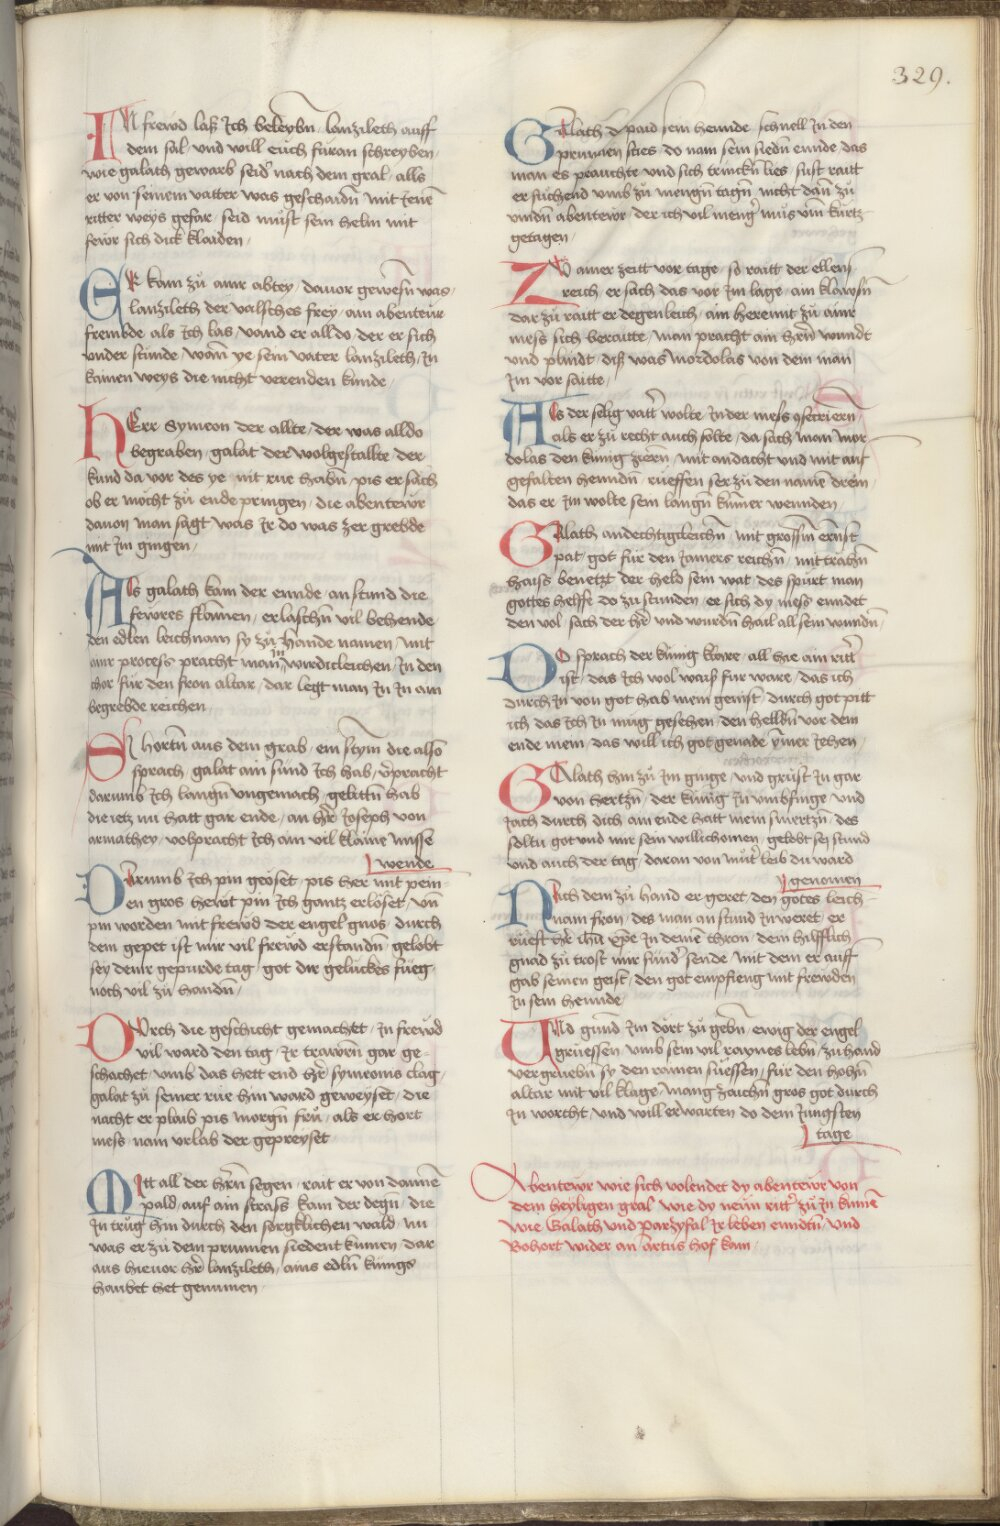 329.
IN frewd laß Ich beleyben lanzileth auff
dem sal / und will euch füran schreyben
wie galath gewarb seid nach dem gral / alls
er von seinem vatter was geschaidn̄ / mit
ritter weys gefar / seid müst sein helm mit
fewr sich dick klaiden /
ER kam zů ainr abtey / dauor gewesn̄ was /
lanzileth der valsches frey / ain abenteür
frembde als Ich las / vand er alldo / der er sich
vnder stünde / wann ye sein vater lanzileth / In
kainen weys die nicht verenden kunde /
HErr Symeon der allte / der was alldo
begraben / galat der wolgestallte / der
kund da vor des ye / nit rue habn̄ / pis er sach
ob er möcht zů ende pringen / die abenteür
dauon man sagt was Ir do was zer grebde
mit Im gingen /
Als galath kam der ennde / an stund die
fewres flamen / erlaschn̄ vil behende
den edlen leichnam sy zů hande namen / mit
ainr process pracht man in wirdicleichen / In den
chor für den fron altar / dar legt man In In ain
begrebde reichen /
SY hortn̄ aus dem grab / ein stym die also
sprach / galat ain sünd Ich hab / v̄pracht
darumb Ich langn̄ vngemach / gelittn̄ hab
die ietz nu hatt gar ende / an her Joseph von
armathey / volpracht Ich ain vil klaine misse
wende
DArumb Ich pin geöset / pis her mit pein-
en gros / hewt pin Ich gantz erlöset / vn̄
pin worden mit frewd der engel gnos / durch
dem gepet ist mir vil frewd erstandn̄ / gelobt
sey deinr gepurde tag / got dir gelückes füeg /
noch vil zů handn̄ /
DUrch die geschicht gemachet / In frewd
vil ward den tag / Ir trawrn̄ gar ge-
schachet / vmb das hett end her symeons clag /
galat zů seiner rue hin ward geweyset / die
nacht er plaib pis morgn̄ frů / als er hort
mess nam vrlab der gepreyset
MItt all der herrn̄ segen / rait er von danne
pald / auf ain strass kam der degn̄ / die
In trug hin durch den sorgklichen wald / nu
was er zů dem prunnen siedent kumen / dar
aus hieuor her lanzileth / ains edln̄ künigs
haubet het genumen /
GAlath d paid sein hennde / schnell In den
prunnen sties / do nam sein siedn̄ ennde / das
man es prauchte vnd sich trinckn̄ lies / sust raitt
er suchend vmb zů mengn̄ tagn̄ / nicht dan̄ zů
vindn̄ abenteür / der ich vil meng mus vm̄ kürtz
getagen /
ZŮ ainer zeitt vor tage / so raitt der ellens
reich / er sach das vor Im lage / ain klawsn̄
dar zů raitt er degenleich / ain heremit zů ainr
mess sich beraitte / man pracht ain her̄n wundt
vnd plindt / diß was Mordolas von dem man
Im vor saitte /
Als der selig vatt wolte / In der mess ꝯsecriern̄
als er zů recht auch solte / da sach man Mor
dolas den künig ziern / mit andacht vnd mit auf
gefalten henndn̄ / rüeffen ser zů den namē drein
das er Im wolte sein langn̄ kum̄er wennden
GAlath andechtigkleichn̄ / mit grossem ernst
pat / got für den Jamers reichn̄ / mit trähn̄
haiss benetzt der held sein wat / des spürt man
gottes helffe do zů stunden / er sich dy mess enndet
den vol / sach der her / vnd wurdn̄ hail all sein wundn̄ /
DO sprach der künig klare / all hie ain ritt
ist / das Ich wol waiß für ware / das ich
durch In von got hab mein genist / durch got pitt
ich das Ich In müg gesehen / den helldn̄ vor dem
ende mein / das will ich got genade ym̄er Iehen /
GAlath hin zů Im ginge / vnd grüst In gar
von hertzn̄ / der künig In vmbfinge / vnd
Iach durch dich ain ende hatt mein smertzn̄ / des
soltu got vnd mir sein willichomen / gelobt sey stund
vnd auch der tag / daran von müt leib du ward
genomen
NAch dem zů hand er geret / den gottes leich-
nam fron / des man an stund In weret / er
rüefft her ih̄u xp̄e In deinē thron / dem hilfflich
gnad zů trost mir sünd sende / mit dem er auff
gab seinen geist / den got empfieng mit frewden
In sein hennde /
UNd gund Im dort zů gebn̄ / ewig der engel
grüessen / vmb sein vil raynes lebn̄ / zů hand
vergruebn̄ sy den rainen süessen / für den hohn̄
altar mit vil klage / mang zaichn̄ gros got durch
In worcht / vnd will er warten do dem Jungsten
tage
Abentewr wie sich volendet dy abentewr von
dem heyligen gral / wie dy neün ritt zů In kumē
wie Galath vnd parzyfal Ir leben enndtn̄ / vnd
Bohort wider an artus hof kam /